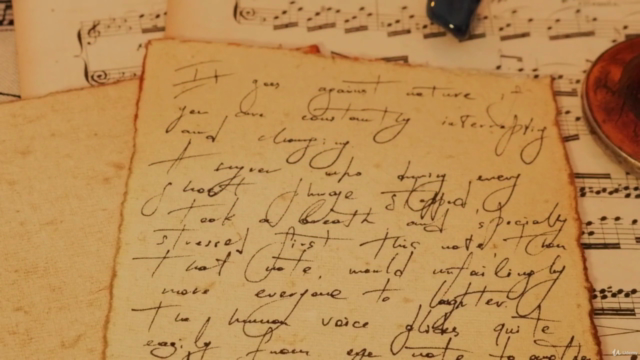 It goes against nature if
you are constantly interrupting
and changing
A singer who during every
short phrase stopped,
took a breath and specially
stressed first this note, then
that note, would unfailingly
move everyone to laughter.
The human voice glides quite
easily from one note to another